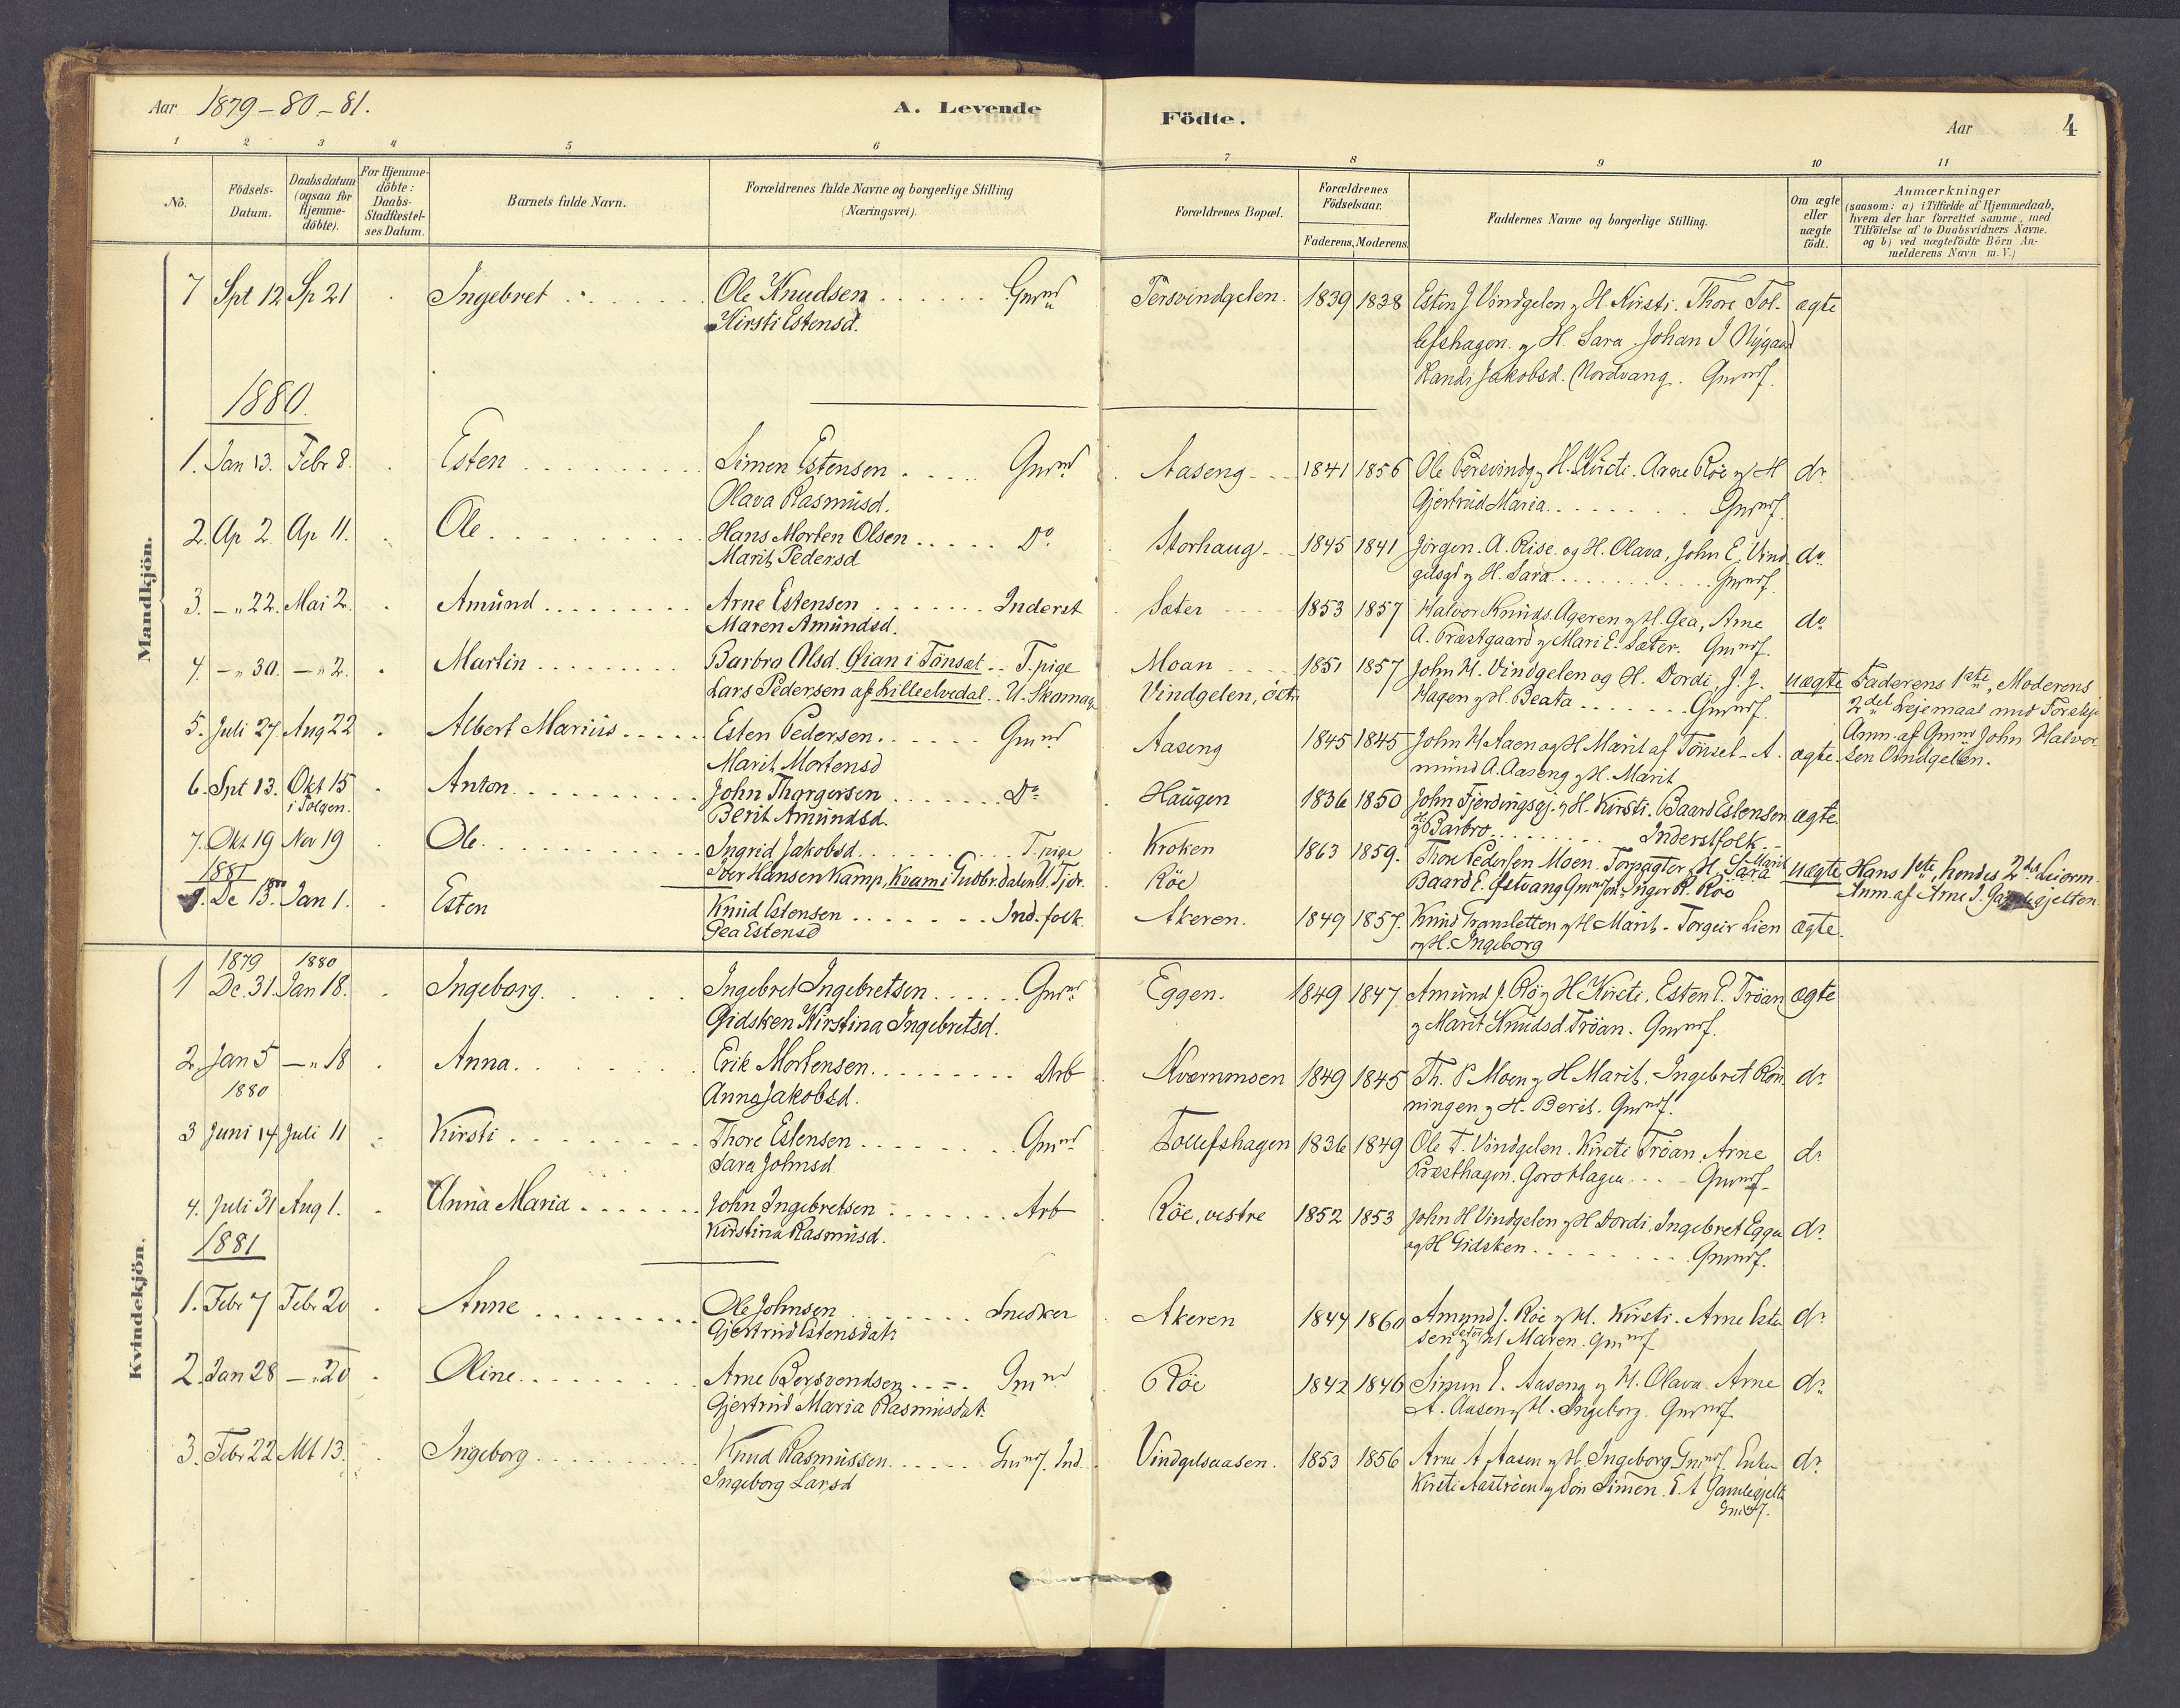 Aar 1879-80-81.
A. Levende
Födte.
Aar
4
1 2 3 4 5 6 7 8 9 10 11
No.
Födsels-
Datum.
Daabsdatum
(ogsaa for
Hjemme-
döbte).
For Hjemme-
döbte:
Daabs-
Stadfæstel-
ses Datum.
Barnets fulde Navn.
Forældrenes fulde Navne og borgerlige Stilling
(Næringsvei).
Forældrenes Bopæl.
Forældrenes
Födselsaar.
Faderens. Moderens.
Faddernes Navne og borgerlige Stilling.
Om ægte
eller
uægte
födt.
Anmærkninger
(saasom: a) i Tilfælde af Hjemmedaab,
hvem der har forrettet samme, med
Tilföielse af to Daabsvidners Navne.
og b) ved uægtefödte Börn An-
melderens Navn m.V.)
Mandkjön.
7 Spt 12 Sp 21 Ingebret Ole Knudsen Gmnd Persvindgelen. 1839 1838 Esten J Vindgelen og H. Kirsti. Thore Tol- ægte
Kirsti Estensd. lefshagen. og H. Sara. Johan J Nygaard
Randi Jakobsd. Nordvang. Gmndf.
1880.
1. Jan 13. Febr 8. Esten Simen Estensen Gmnd Aaseng 1841 1856 Ole Persvindg. og H. Kirsti. Arne Röe og H do
Olava Rasmusd. Gjertrud Maria Gmndf.
2. Ap 2. Ap 11. Ole Hans Morten Olsen Do Storhaug 1845 1841 Jörgen. A. Rise. og H. Olava, John E. Vind- do
Marit Pedersd gelsgd og H. Sara Gmndf.
3. -"22. Mai 2. Amund Arne Estensen Inderst Sæter 1853 1857 Halvor Knuds. Ageren og H. Gea, Arne do
Maren Amundsd. A. Præstgaard og Mari E. Sæter. Gmndf.
4. -"30. -"2. Martin Barbro Olsd. Öian i Tönsæt T. pige Moan 1851 1857 John H. Vindgelen og H. Dordi, J. J. uægte Faderens 1ste, Moderens
Lars Pedersen af Lilleelvedal U. Skomag. Vindgelen, östr. Hagen og H. Beata Gmndf. 2det Lejemaal med Forskj.
5. Juli 27 Aug 22 Albert Marius Esten Pedersen Gmnd Aaseng 1845 1845 John H Aaen og H Marit af Tönset - A. ægte. Anm. af Gmnd John Halvor-
Marit Mortensd mund A. Aaseng og H. Marit sen Vindgelen.
6. Spt 13. Okt 15 Anton John Thorgersen Do Haugen 1836 1850 John Fjerdingsgj. og H. Kirsti. Baard Estensen ægte
i Tolgen. Berit Amundsd. og H Barbro Inderstfolk.
7. Okt 19 Nov 19 Ole Ingrid Jakobsd T. pige Kroken 1863 1859. Thore Pedersen Moen. Forpagter og H. Marit uægte Hans 1ste, hendes 2det Leierm.
Iver Hansen Kamp, Kvam i Gudbr. dalen U. Tjdr. Röe Baard E. Östvang Gmnd Inger R. Röe Anm. af Arne J. Gamlegjelten
1881
De 13. Jan 1. Esten Knud Estensen Ind. folk. Akeren. 1849 1857. Knud Tramsletten og H Marit - Torgeir Lien ægte.
Gea Estensd og H. Ingeborg
Kvindekjön.
1879 1880
1 De. 31. Jan 18. Ingeborg Ingebret Ingebretsen Gmnd Eggen. 1849 1847 Amund J. Rö og H Kirsti. Esten E. Tröan ægte
Gidsken Kirstina Ingebretsd. og Marit Knudsd Tröan. Gmndf.
2. Jan 5 -"18 Anna Erik Mortensen Arb Kværnmoen 1849 1845 Th. P Moen og H Marit. Ingebret Rön- do
1880 Anna Jakobsd. ningen og H. Berit. Gmndf.
3 Juni 14 Juli 11 Kirsti Thore Estensen Gmnd Tollefshagen 1836 1849 Ole T. Vindgelen. Kirsti Tröan. Arne do
Sara Johnsd Præsthagen. Goro Hagen Gmndf.
4. Juli 31 Aug 1. Anna Maria John Ingebretsen Arb Röe, vestre 1852 1853 John H Vindgelen og H Dordi. Ingebret Eggen do
Kirstina Rasmusd. og H Gidsken Gmndf.
1881
1. Febr 7 Febr 20 Anne Ole Johnsen Snedker Akeren 1844 1860 Amund J. Röe og H. Kirsti. Arne Esten- do
Gjertrud Estensdatr sen Seter og H Maren. Gmndf
2. Jan 28 -"20 Oline Arne Bersvendsen Gmnd Röe 1842 1846 Simen E. Aaseng og H. Olava. Arne do
Gjertrud Maria Rasmusdatr A. Aasen og H. Ingeborg. Gmndf.
3. Febr 22 Mt 13. Ingeborg Knud Rasmussen Gmndf. Ind. Vindgelsaasen. 1853 1856 Arne A Aasen og H. Ingeborg Gmndf. Enke do
Ingeborg Larsd Kirsti Aaströen og Sön Simen. E. A Gamlegjelt
Gmndf.